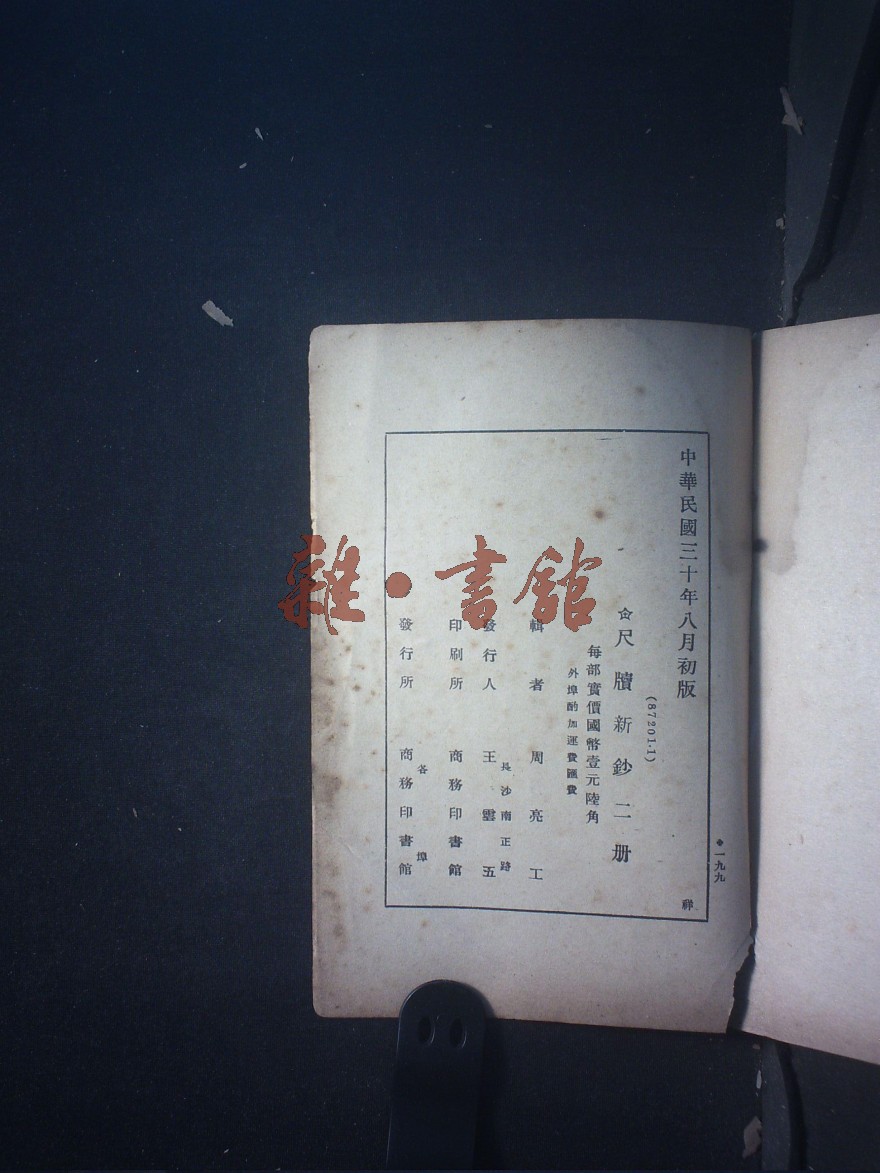 中華民國三十年八月初版
(87201·1)
尺牘新鈔二册
每部實價國幣壹元陸角
外埠酌加運費匯費
輯者 周亮工
發行人 王雲五
長沙南正路
印刷所 商務印書館
發行所 商務印書館
各埠
◆一九九
祥
雜·書館